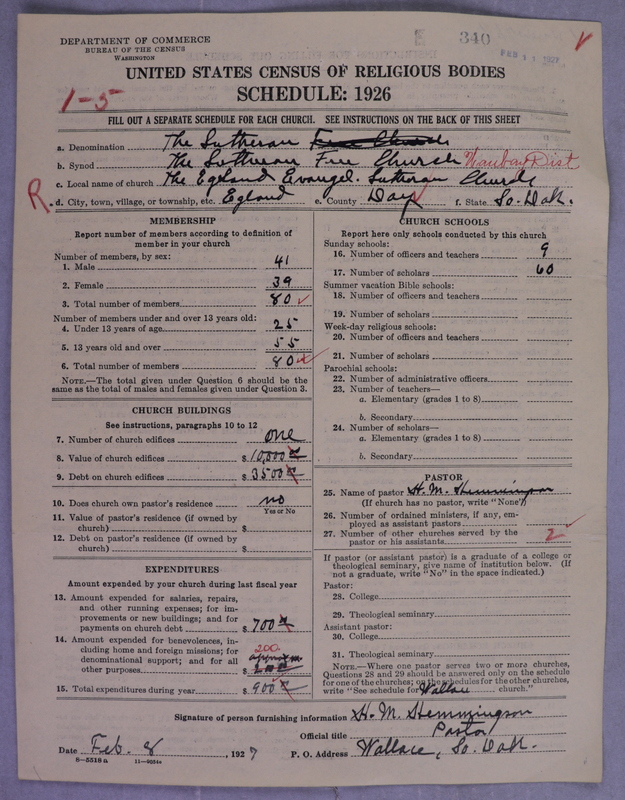 DEPARTMENT OF COMMERCE
BUREAU OF THE CENSUS
WASHINGTON
340
FEB 11 1927
UNITED STATES CENSUS OF RELIGIOUS BODIES
SCHEDULE: 1926
1-5
FILL OUT A SEPARATE SCHEDULE FOR EACH CHURCH. SEE INSTRUCTIONS ON THE BACK OF THIS SHEET
a. Denomination The Lutheran Free Church
b. Synod The Lutheran Free Church Waubay Dist
c. Local name of church The Egeland Evangel. Lutheran Church
R. d. City, town, village, or township, etc. Egland e. County Day f. State So. Dak.
MEMBERSHIP
Report number of members according to definition of
member in your church
Number of members, by sex:
1. Male 41
2. Female 39
3. Total number of members 80
Number of members under and over 13 years old:
4. Under 13 years of age 25
5. 13 years old and over 55
6. Total number of members 80
NOTE.—The total given under Question 6 should be
same as the total of males and females given under Question 3.
CHURCH BUILDINGS
See instructions, paragraphs 10 to 12
7. Number of church edifices one
8. Value of church edifices $ 10,000
9. Debt on church edifices $ 3500
10. Does church own pastor's residence no
Yes or No
11. Value of pastor's residence (if owned by
church) $
12. Debt on pastor's residence (if owned by
church) $
EXPENDITURES
Amount expended by your church during last fiscal year
13. Amount expended for salaries, repairs,
and other running expenses; for im-
provements or new buildings; and for
payments on church debt $ 700
14. Amount expended for benevolences, in-
cluding home and foreign missions; for 200
denominational support; and for all approxim.
other purposes $ 200
15. Total expenditures during year $ 900
CHURCH SCHOOLS
Report here only schools conducted by this church
Sunday schools:
16. Number of officers and teachers 9
17. Number of scholars 60
Summer vacation Bible schools:
18. Number of officers and teachers
19. Number of scholars
Week-day religious schools:
20. Number of officers and teachers
21. Number of scholars
Parochial schools:
22. Number of administrative officers
23. Number of teachers—
a. Elementary (grades 1 to 8)
b. Secondary
24. Number of scholars—
a. Elementary (grades 1 to 8)
b. Secondary
PASTOR
25. Name of pastor H. M. Hemmingson
(If church has no pastor, write "None")
26. Number of ordained ministers, if any, em-
ployed as assistant pastors
27. Number of other churches served by the
pastor or his assistants 2
If pastor (or assistant pastor) is a graduate of a college or
theological seminary, give name of institution below. (If
not a graduate, write "No" in the space indicated.)
Pastor:
28. College
29. Theological seminary
Assistant pastor:
30. College
31. Theological seminary
NOTE.—Where one pastor serves two or more churches,
Questions 28 and 29 should be answered only on the schedule
for one of the churches; on the schedules for the other churches,
write "See schedule for Wallace church."
Signature of person furnishing information H. M. Hemmingson
Official title Pastor
Date Feb. 8, 1927 P. O. Address Wallace, So. Dak.
8—5518 a 11—9054a